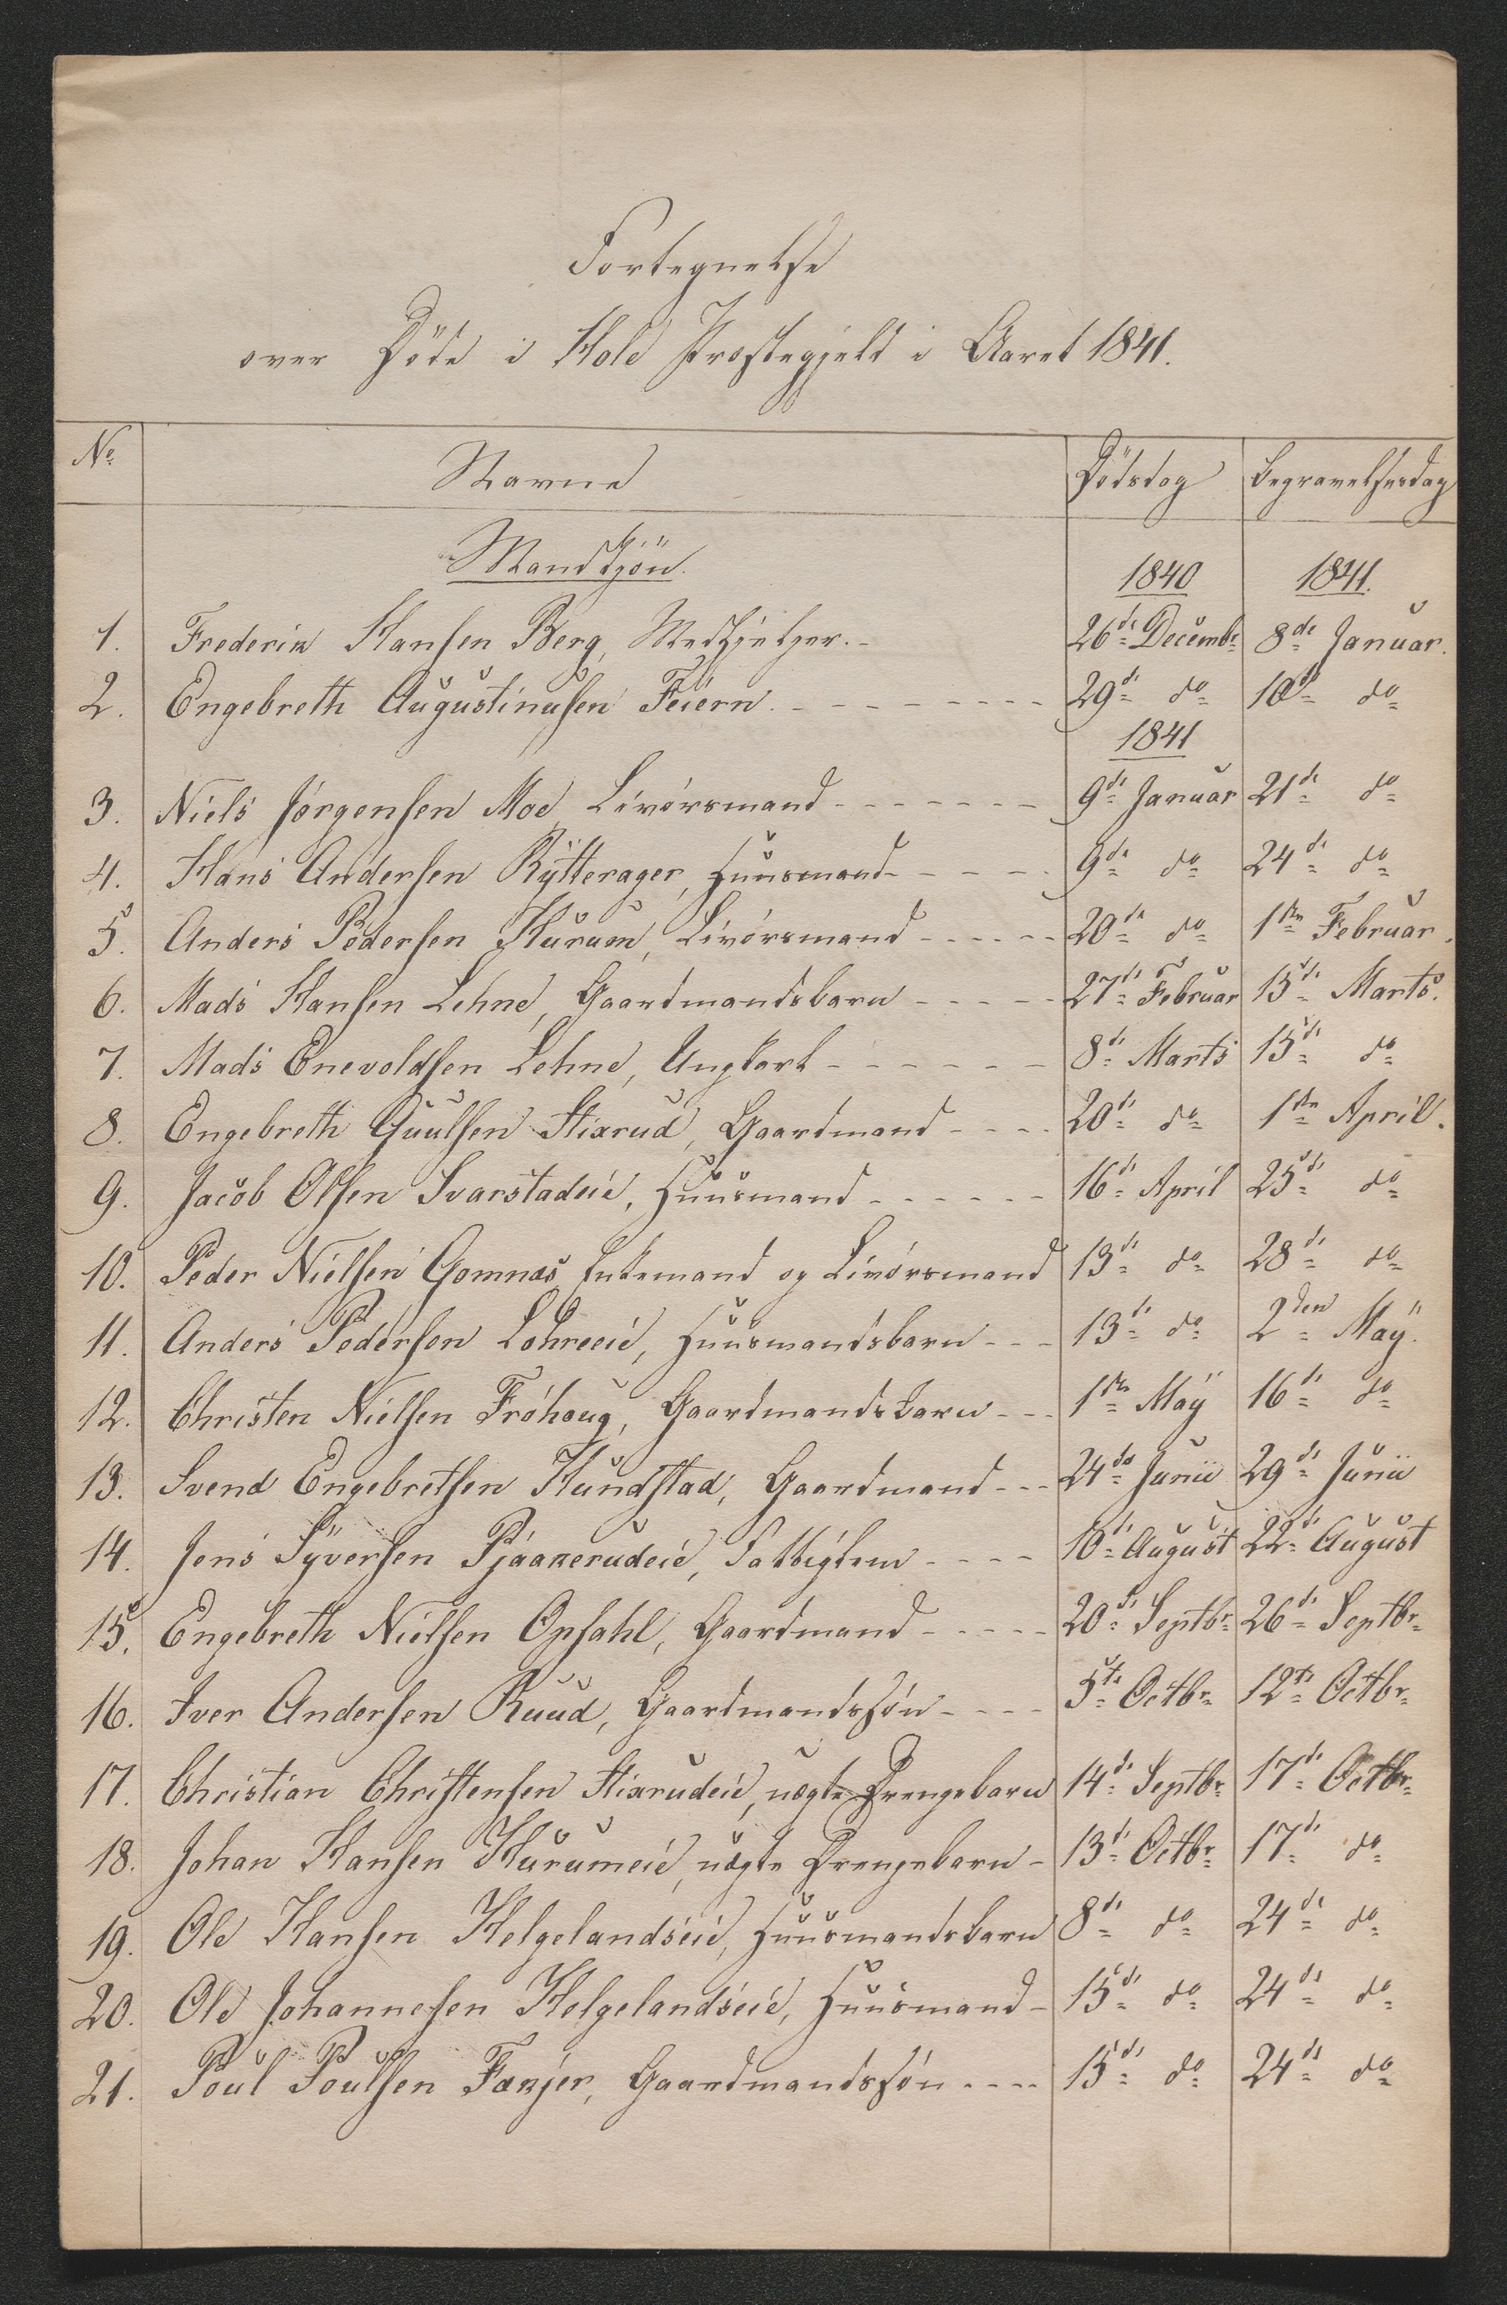 Fortegnelse
over Döde i Hole Præstegjeld i Aaret 1841.
No Navne Dödsdag Begravelsesdag
Mandkjön.
1840 1841.
1. Frederik Hansen Berg, Medhjelper. - 26de Decembr 8de Januar.
2. Engebreth Augustinusen Feiern. - - - - - - - - 29de do 10de do
1841
3. Niels Jörgensen Moe, Livörsmand - - - - - - - 9de Januar 21de do
4. Hans Andersen Rÿtterager, Huusmand - - - - 9de do 24de do
5. Anders Pedersen Hurum, Livörsmand - - - - - 20de do 1ste Februar.
6. Mads Hansen Lehne, Gaardmandsbarn - - - - - 27de Februar 15de Marts.
7. Mads Enevoldsen Lehne, Ungkarl - - - - - - 8de Marts 15de do
8. Engebreth Guulsen Stixrud, Gaardmand - - - - 20de do 1ste April.
9. Jacob Olsen Svarstadeie, Huusmand - - - - - - 16de April 25de do
10. Peder Nielsen Gomnæs, Enkemand og Livörsmand 13de do 28de do
11. Anders Pedersen Lohreeie, Huusmandsbarn - - - 13de do 2den Maÿ.
12. Christen Nielsen Fröhoug, Gaardmandsbarn - - - 1ste Maÿ 16de do
13. Svend Engebretsen Hundstad, Gaardmand - - - 24de Junii 29de Junii
14. Jens Sÿversen Pjaakerudeie, Fattiglem - - - - 10de August 22de August
15. Engebreth Nielsen Opsahl, Gaardmand - - - - - 20de Septbr 26de Septbr
16. Iver Andersen Ruud, Gaardmandssön - - - - 5te Octbr 12te Octbr
17. Christian Christensen Stixrudeie, uægte Drengebarn 14de Septbr 17de Octbr
18. Johan Hansen Hurumeie, uægte Drengebarn - 13de Octbr 17de do
19. Ole Hansen Helgelandseie, Huusmandsbarn 8de do 24de do
20. Ole Johannesen Helgelandseie, Huusmand - 15de do 24de do
21. Poul Poulsen Fækjer, Gaardmandssön - - - - 15de do 24de do